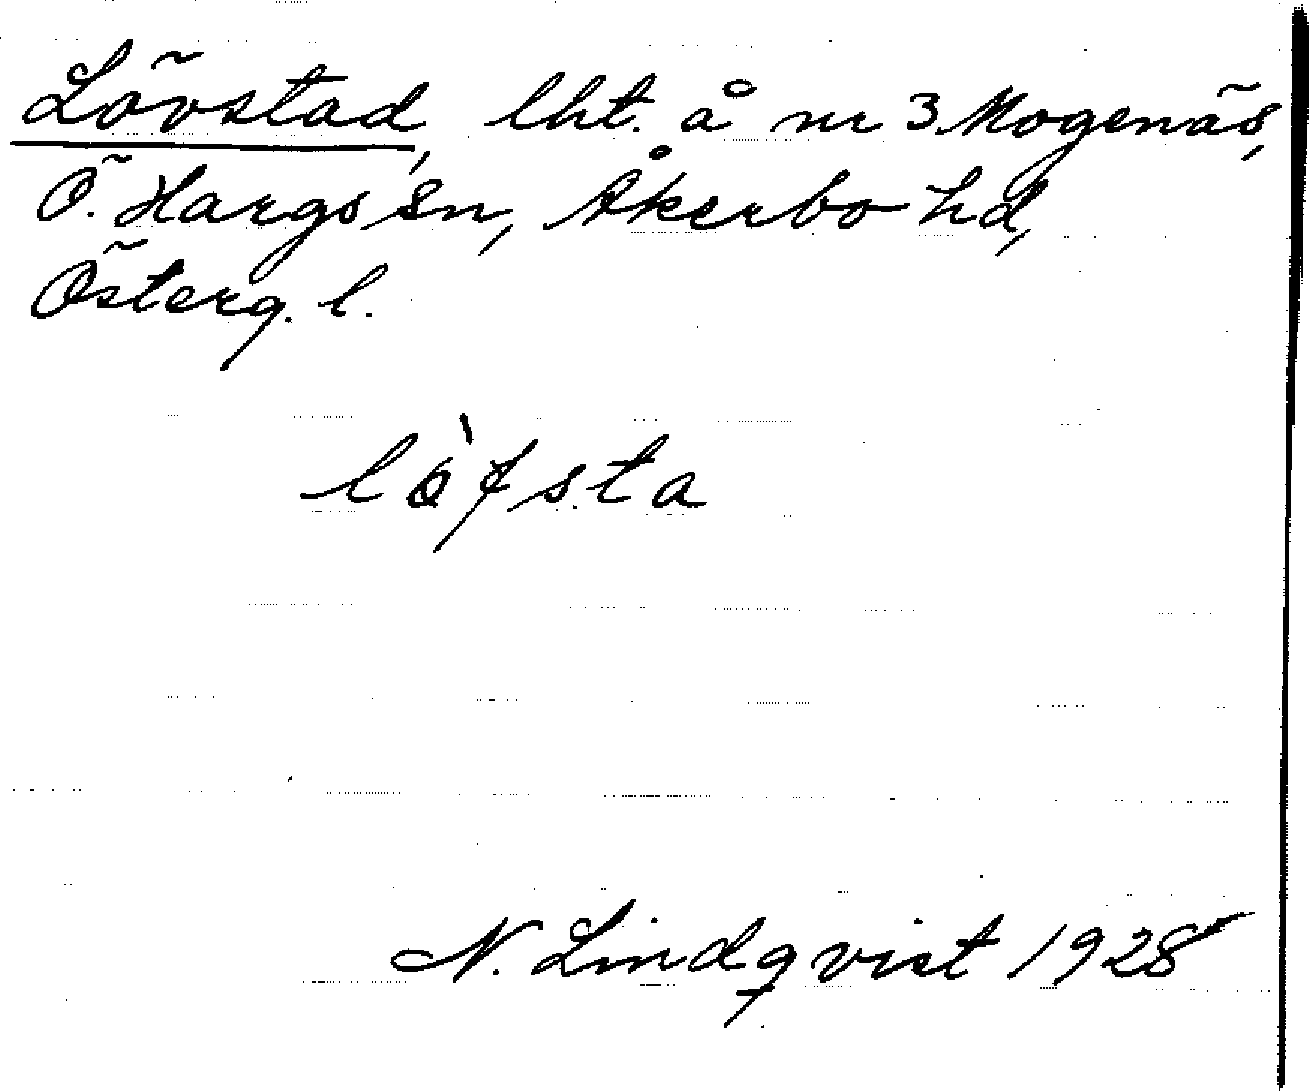 Lövstad, lht. å nr 3 Mogenäs,
Ö. Hargs sn, Åkerbo hd,
Österg. l.
lòfsta
N. Lindqvist 1928